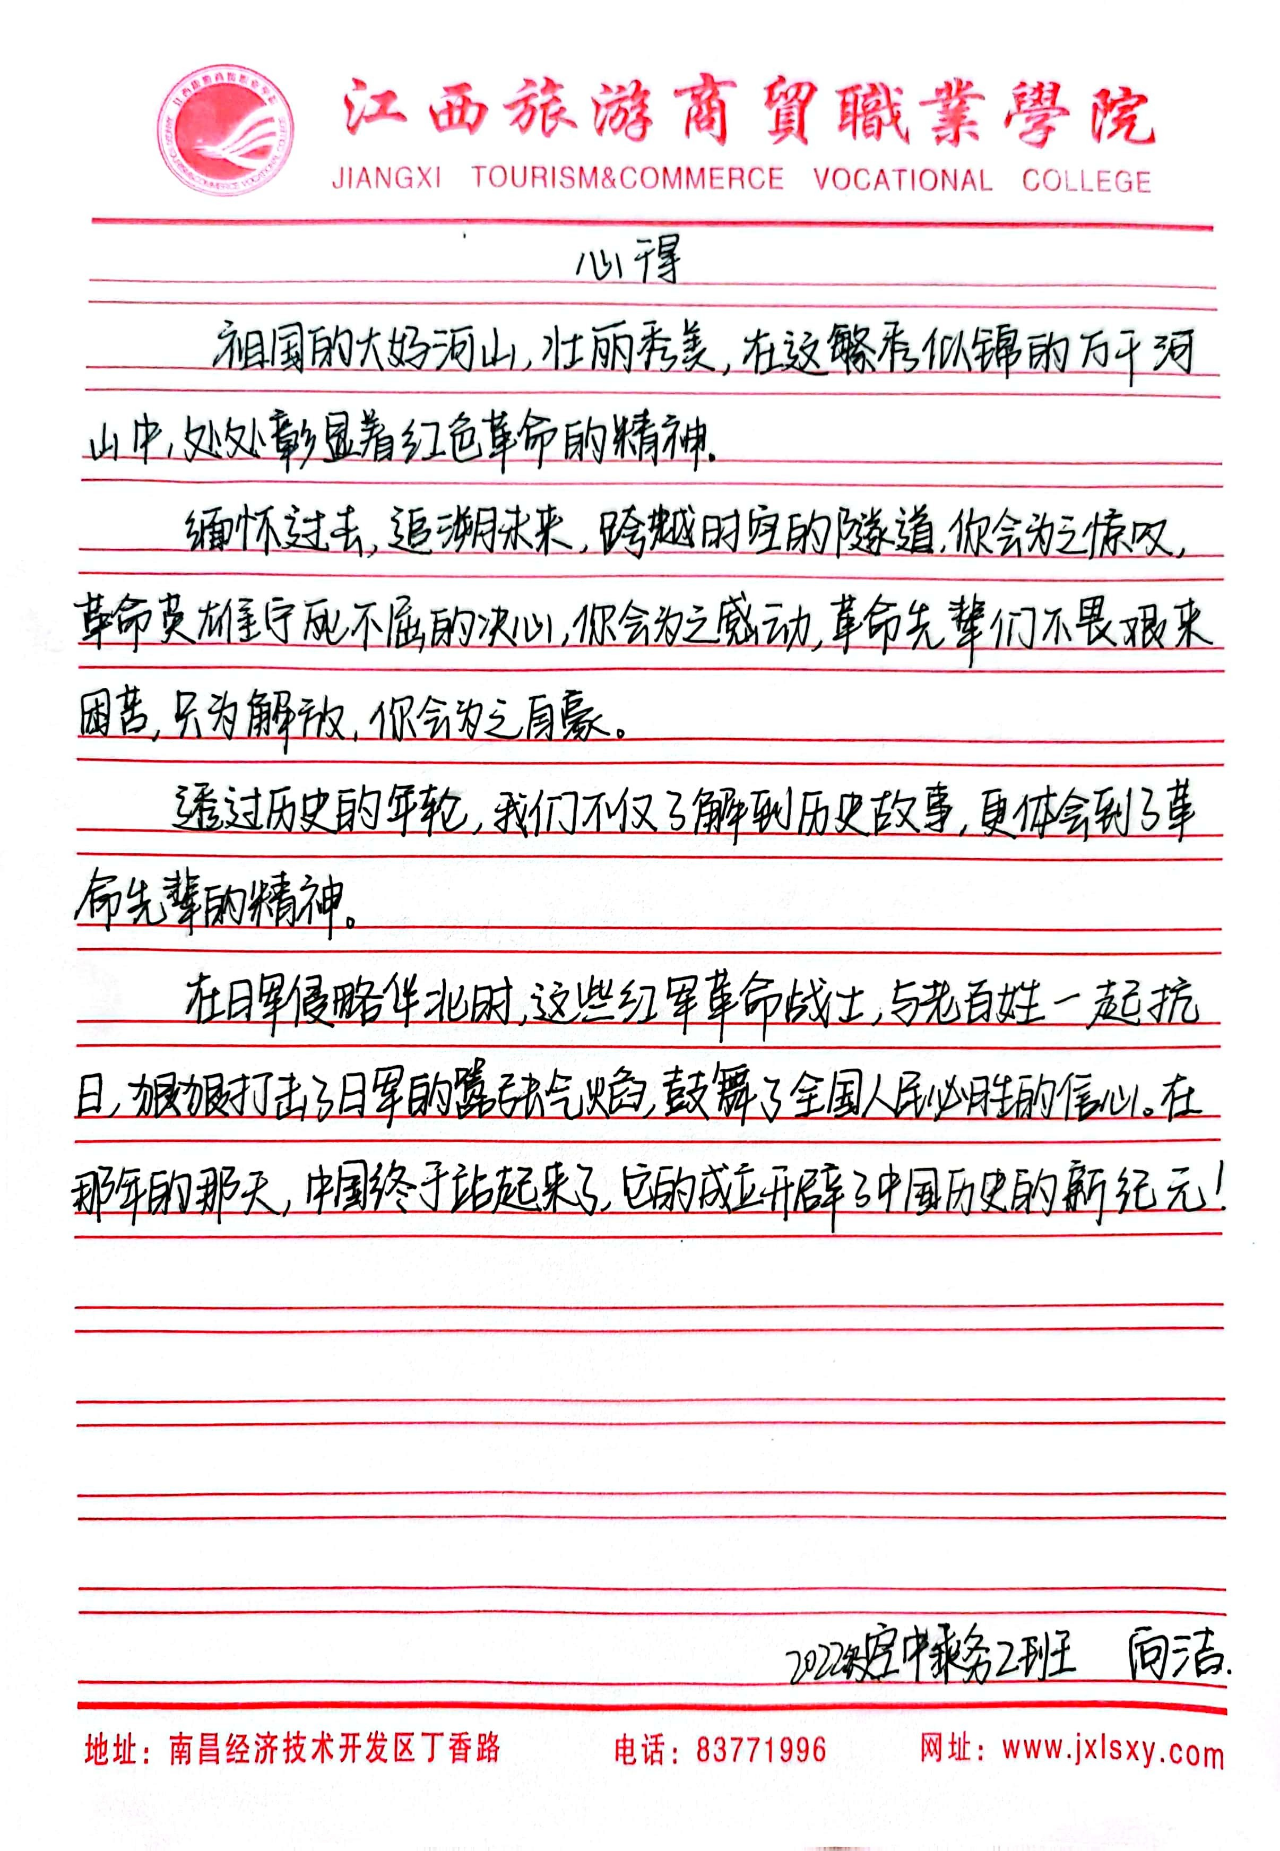 江西旅游商貿職業學院
JIANGXI TOURISM&COMMERCE VOCATIONAL COLLEGE
心得
祖国的大好河山，壮丽秀美，在这繁秀似锦的万千河
山中，处处彰显着红色革命的精神.
缅怀过去，追溯未来，跨越时空的隧道，你会为之惊叹，
革命英雄宁死不屈的决心，你会为之感动，革命先辈们不畏艰来
困苦，只为解放，你会为之自豪。
透过历史的年轮，我们不仅了解到历史故事，更体会到了革
命先辈的精神。
在日军侵略华北时，这些红军革命战士，与老百姓一起抗
日，狠狠打击了日军的嚣张气焰，鼓舞了全国人民必胜的信心。在
那年的那天，中国终于站起来了，它的成立开辟了中国历史的新纪元！
2022级空中乘务2班 向洁.
地址：南昌经济技术开发区丁香路 电话：83771996 网址：www.jxlsxy.com